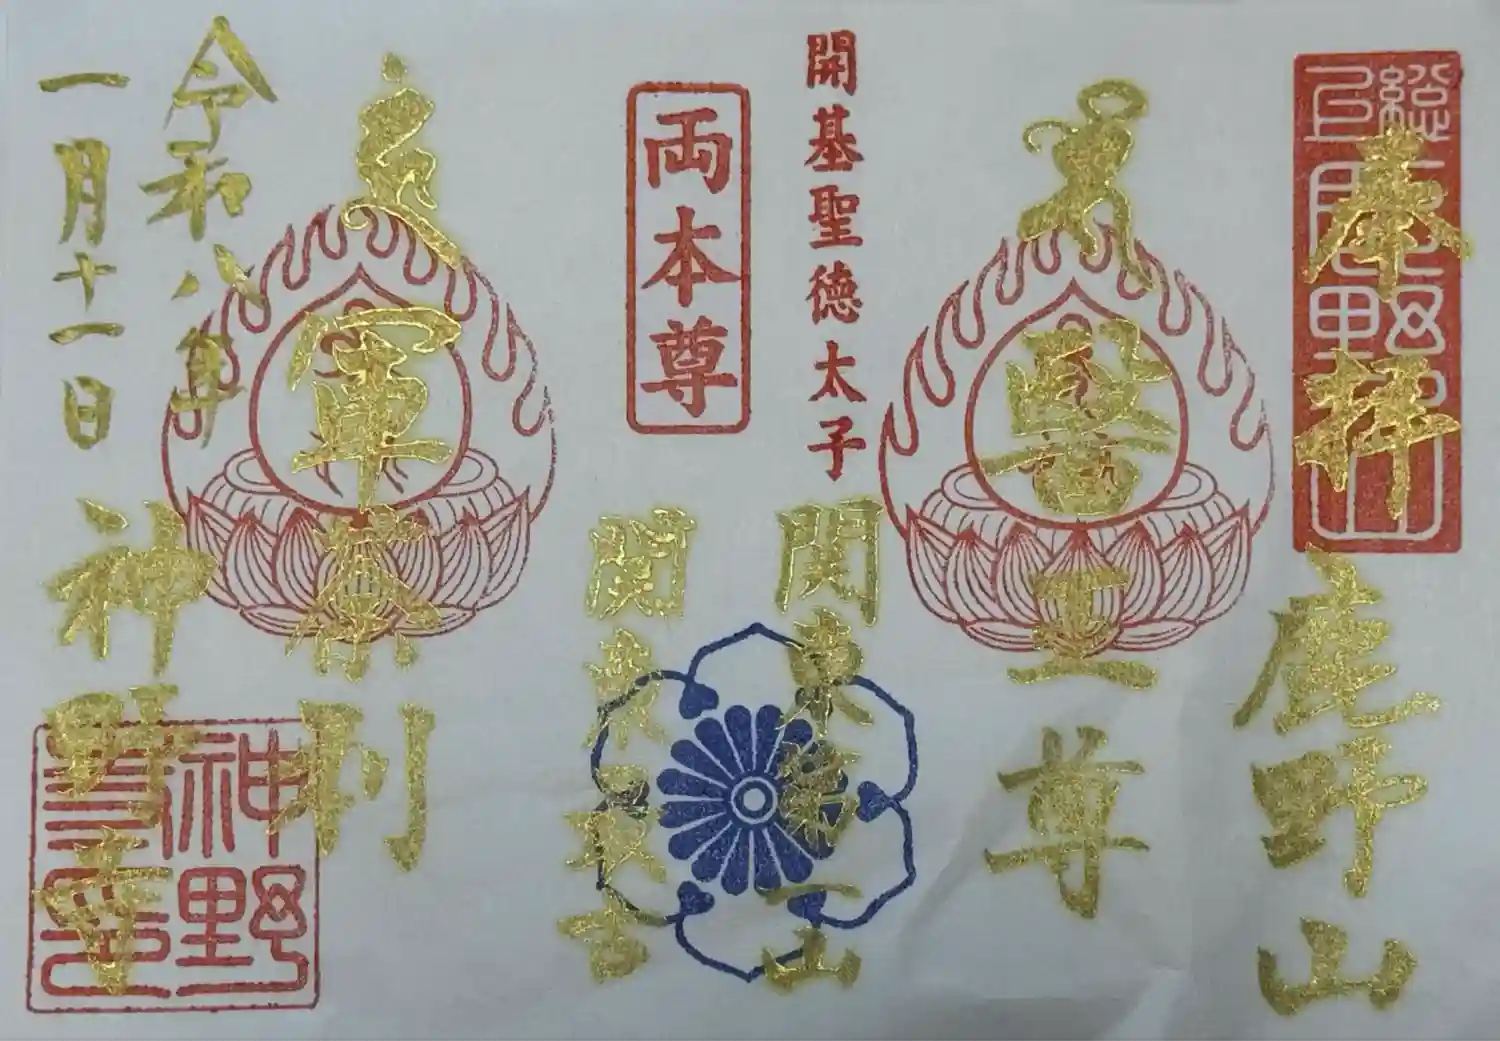 奉拝
鹿野山
醫王尊
開基聖徳太子
関東第一山
両本尊
関東最古
軍荼利
令和八年
一月十一日
神野寺
神野寺印